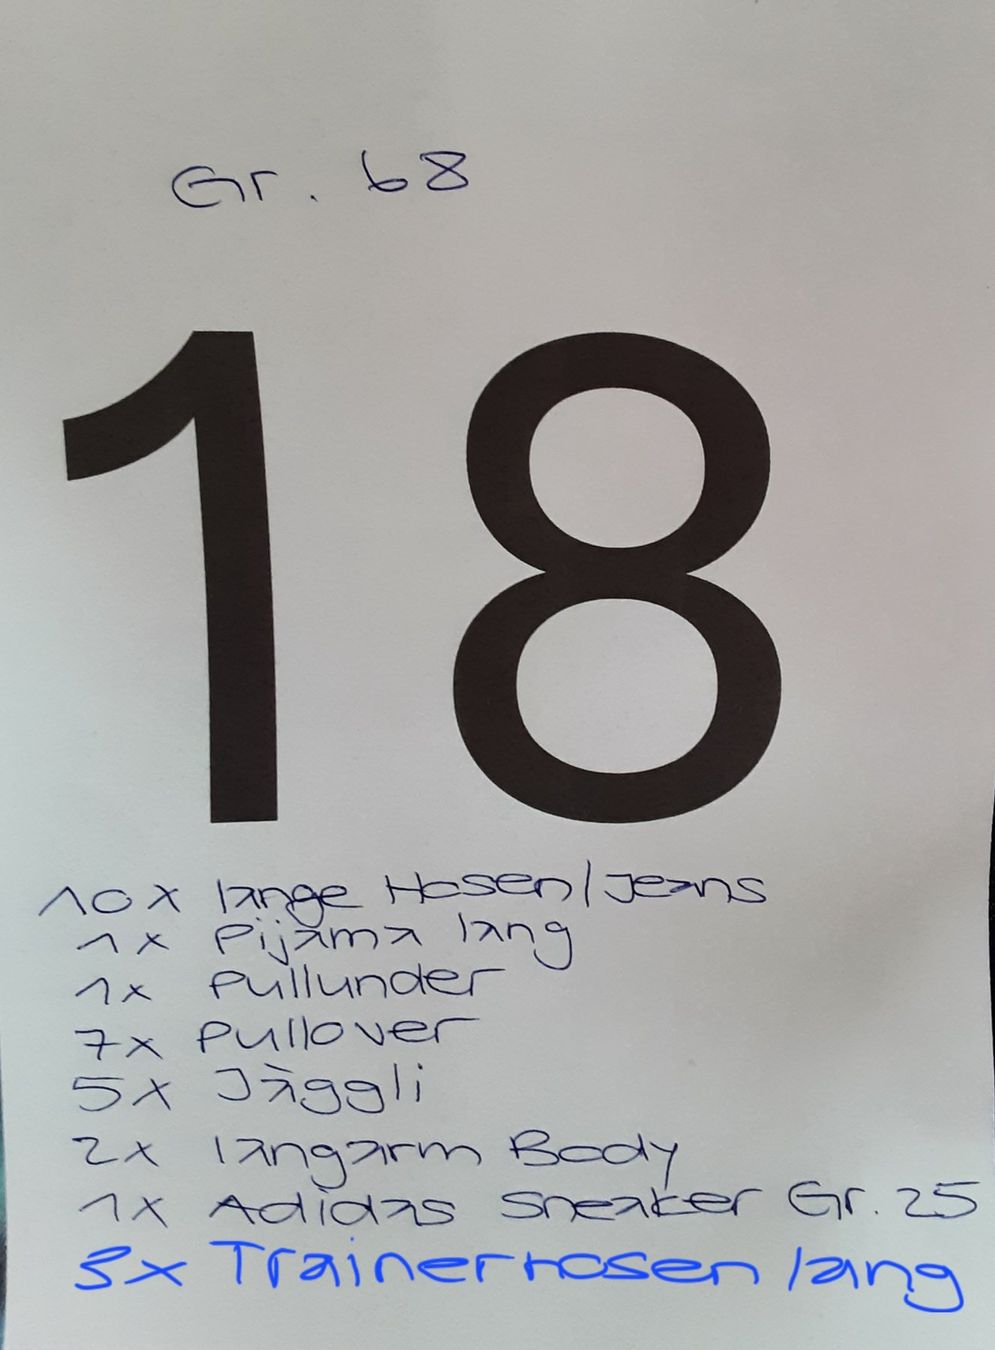 Gr. 68
18
10x lange Hosen/Jeans
1x Pijama lang
1x Pullunder
7x Pullover
5x Jäggli
2x langarm Body
1x Adidas Sneaker Gr. 25
3x Trainerhosen lang